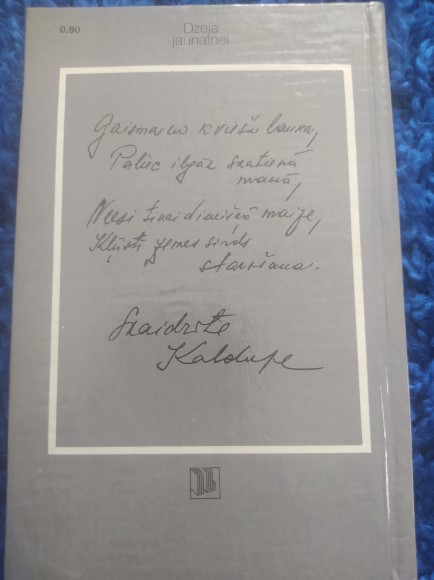 0.80
Dzeja
jaunatnei
Gaisma no kviešu lauka,
Paliec ilgāk skatienā
manā,
Neesi tikai dienišķā maize,
Kļūsti zemes sirds
starošana.
Skaidrīte
Kaldupe